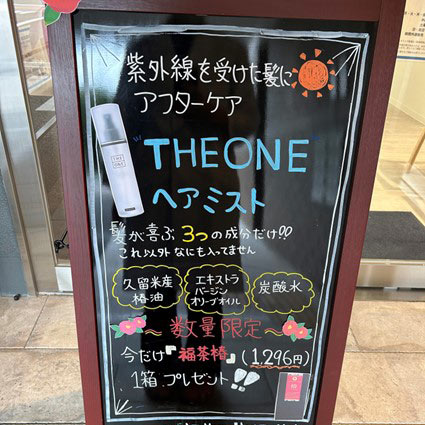 紫外線を受けた髪に
アフターケア
"THEONE"
ヘアミスト
髪が喜ぶ 3つの成分だけ!!
これ以外なにも入ってません
久留米産
椿油
エキストラ
バージン
オリーブオイル
炭酸水
〜 数量限定 〜
今だけ『福茶椿』(1,296円)
1箱 プレゼント!!